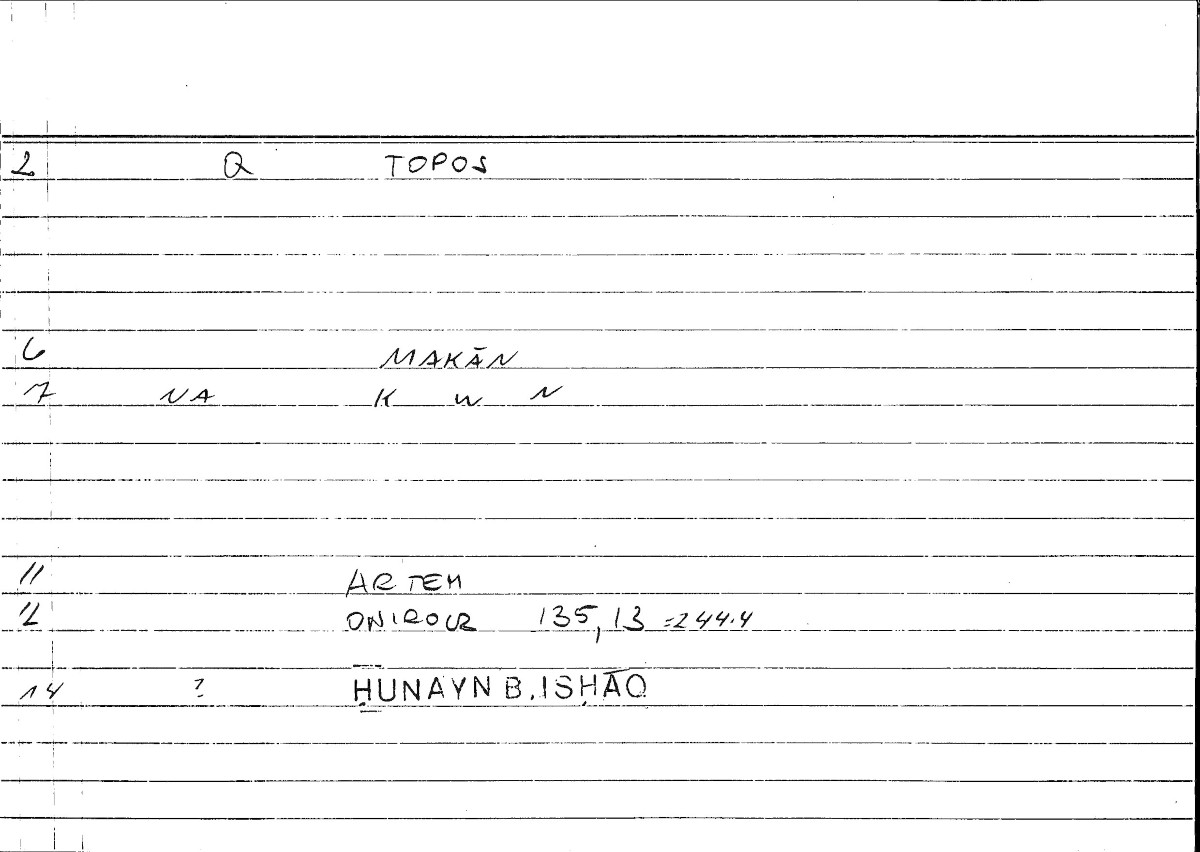 2 Q TOPOS
6 MAKĀN
7 NA K W N
11 ARTEM
12 ONIROCR 135,13 =244.4
14 ? ḤUNAYN B. ISḤĀQ